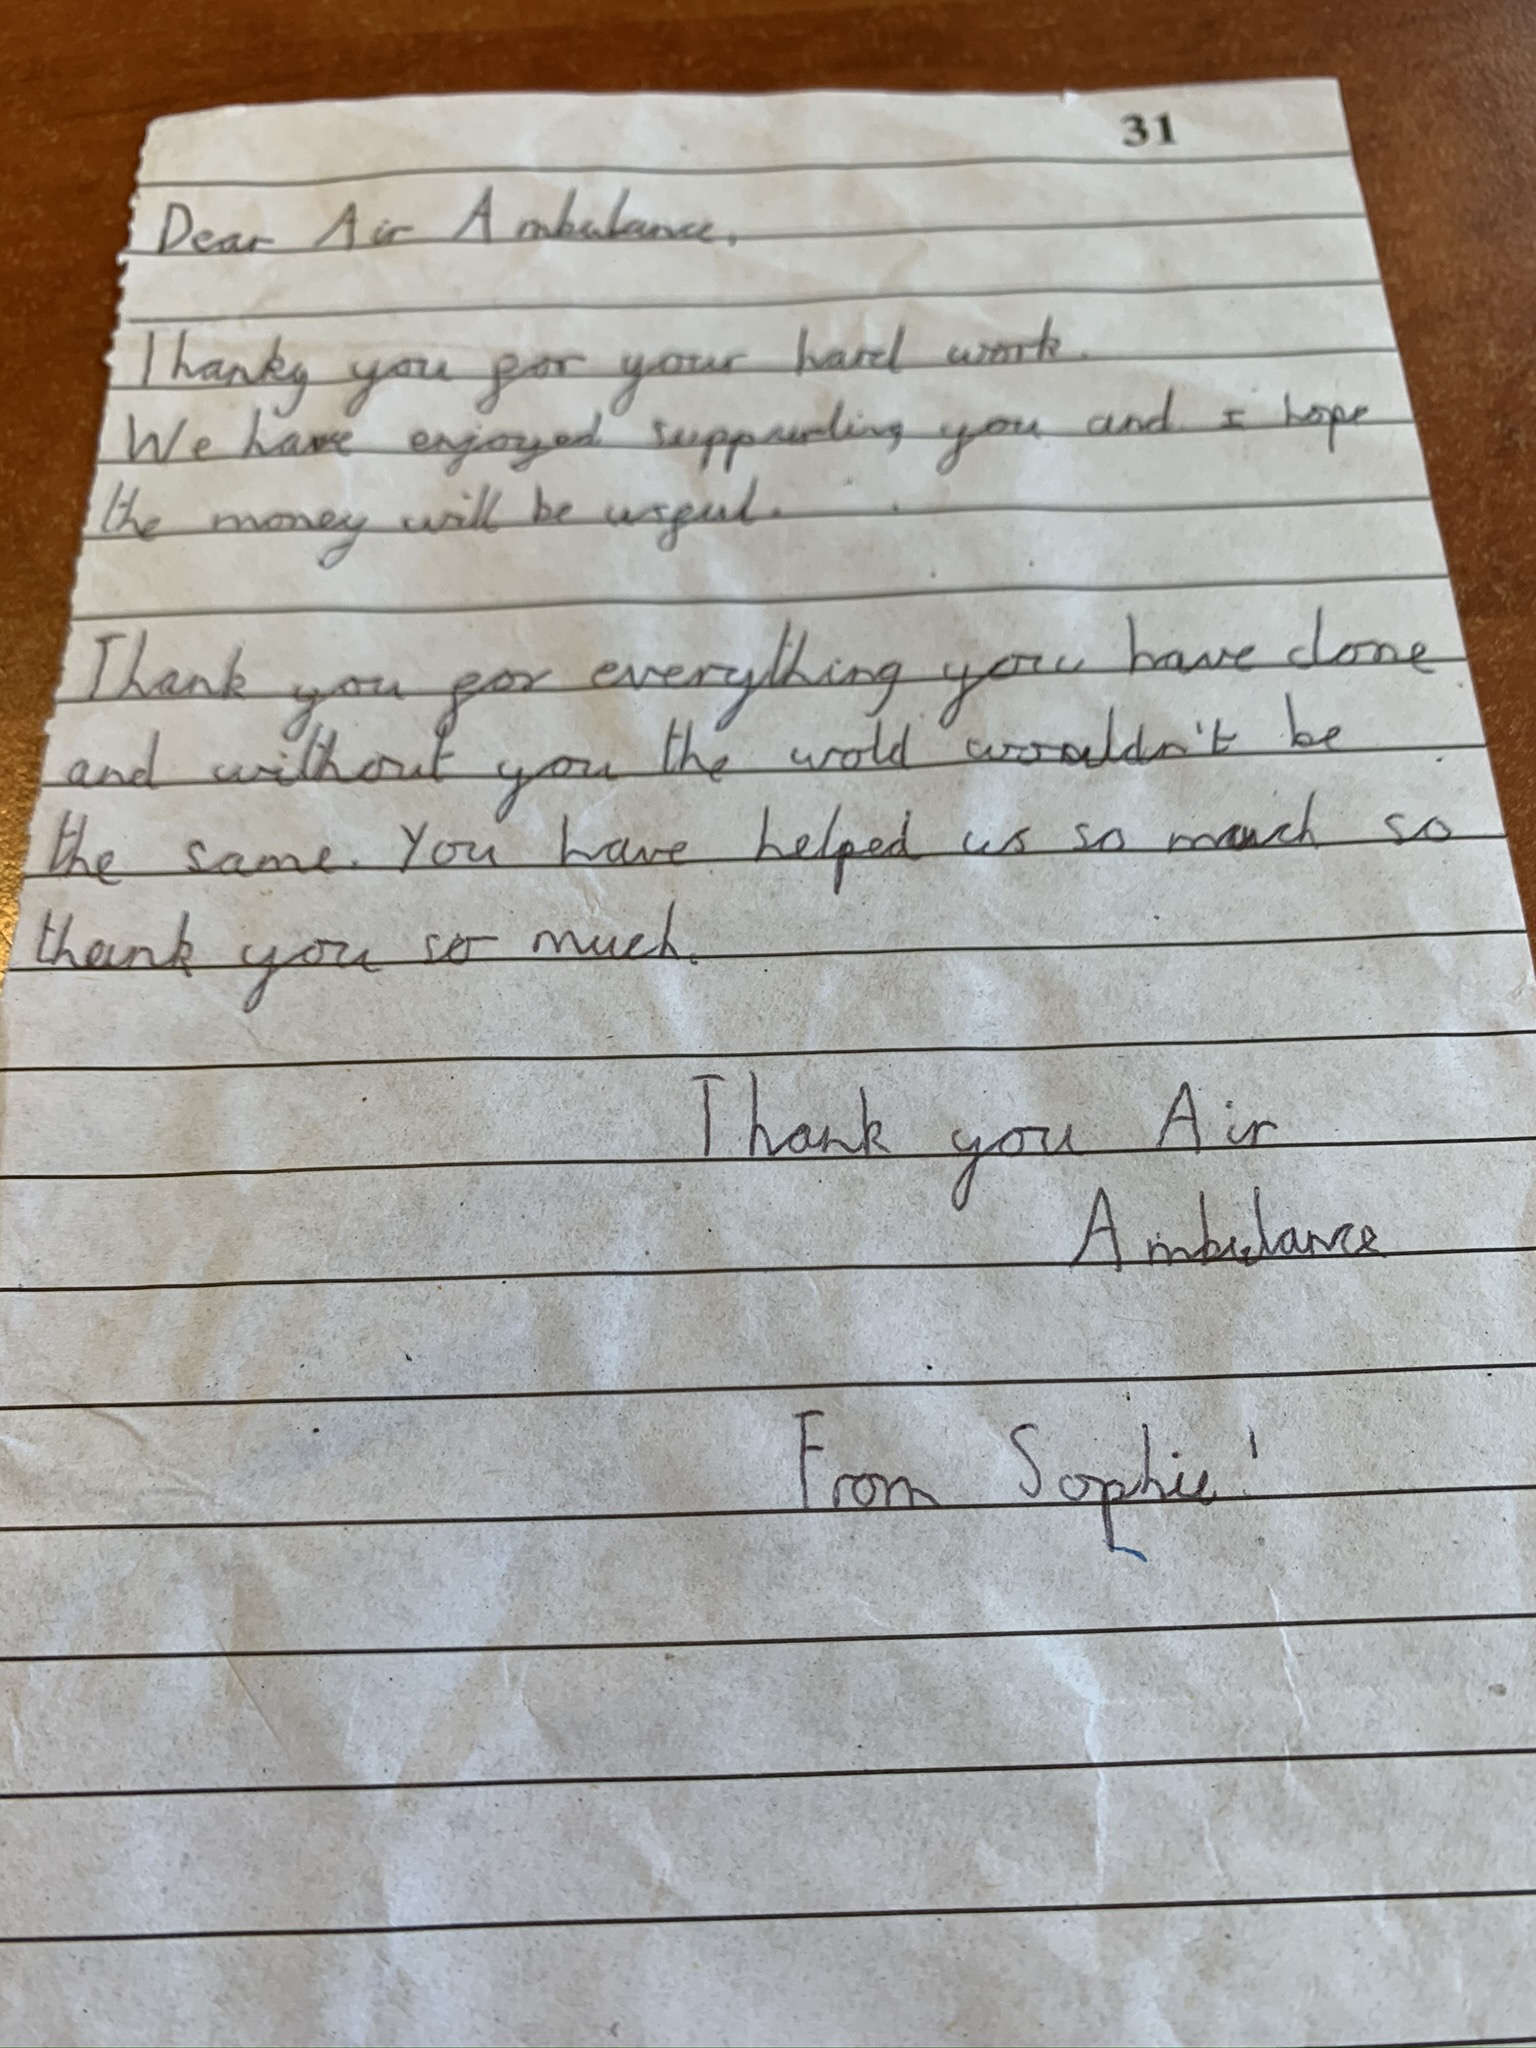 31
Dear Air Ambulance,
Thanky you for your hard work.
We have enjoyed supporting you and I hope
the money will be useful.
Thank you for everything you have done
and without you the wold wouldn't be
the same. You have helped us so much so
thank you so much.
Thank you Air
Ambulance
From Sophie!